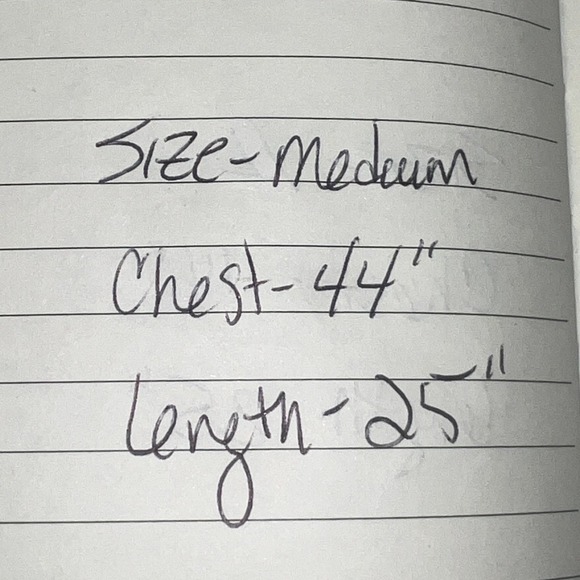 Size - Medium
Chest - 44"
Length - 25"